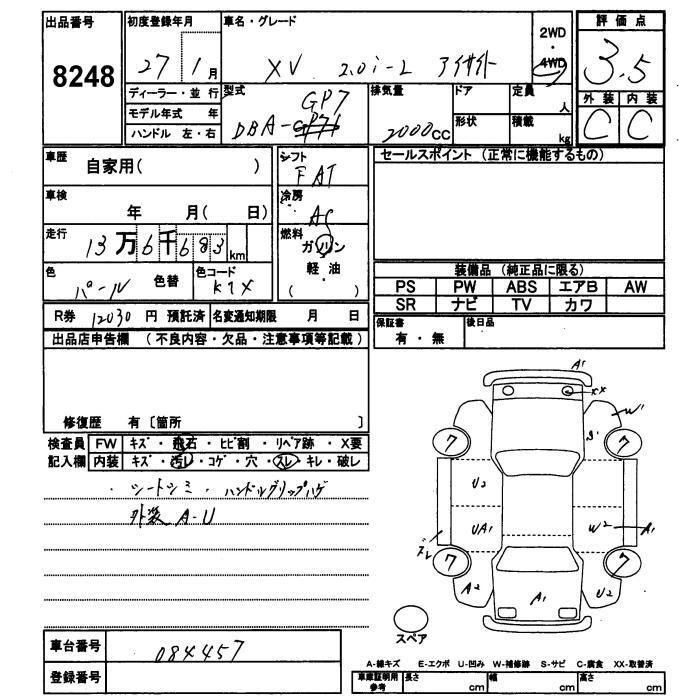 出品番号 初度登録年月 車名・グレード 2WD・4WD 評価点
8248 27 1月 XV 2.0i-L アイサイト 3.5
ディーラー・並行 型式 排気量 ドア 定員 人 外装 内装
モデル年式 年 DBA-GP7 2000cc 形状 積載 kg C C
ハンドル 左・右
車歴 自家用( ) シフト FAT セールスポイント (正常に機能するもの)
車検 年 月( 日) 冷房 AC
走行 13万6千683km 燃料 ガソリン
色 パール 色替 色コード K1X 軽・油 ( )
装備品 (純正品に限る)
PS PW ABS エアB AW
SR ナビ TV カワ
R券 12030 円 預託済 名変通知期限 月 日 保証書 有・無 後日品
出品店申告欄 (不良内容・欠品・注意事項等記載)
修復歴 有〔箇所 〕
検査員 FW キズ・飛石・ヒビ割・リペア跡・X要
記入欄 内装 キズ・汚レ・コゲ・穴・スレ・キレ・破レ
・シートシミ・ハンドルグリップハゲ
外装 A-U
A1
XX
W1
7 S1 7
U2
UA1 W2 A1
スレ
7 7
A2 A1 U2
スペア
車台番号 084457
登録番号
A-線キズ E-エクボ U-凹み W-補修跡 S-サビ C-腐食 XX-取替済
車庫証明用参考 長さ cm 幅 cm 高さ cm